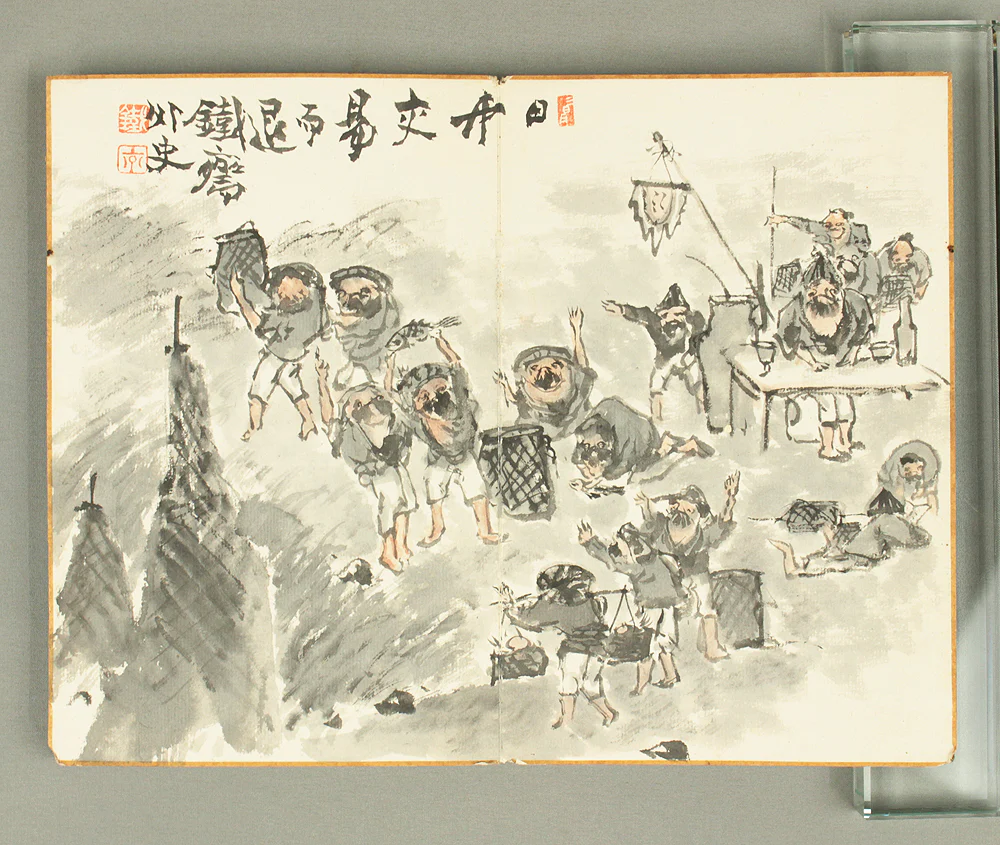 日中交易而退
鐵齋
外史